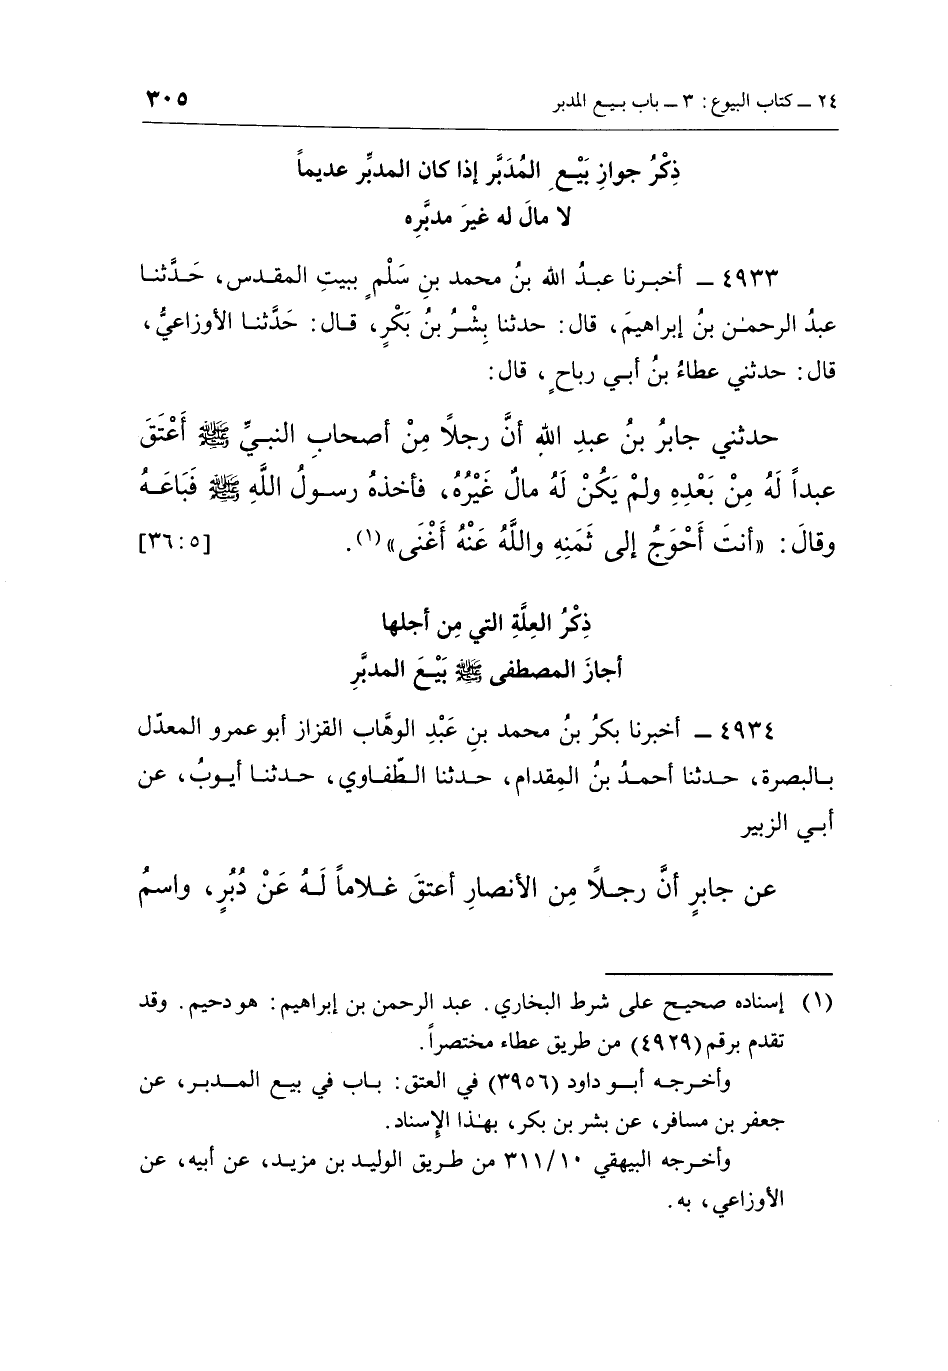 ٢٤ ــ كتاب البيوع : ٣ ــ باب بيع المدبر ٣٠٥
ذِكْرُ جوازِ بَيْعِ المُدَبَّر إذا كان المدبِّر عديماً
لا مالَ له غيرَ مدبَّرِه
٤٩٣٣ ــ أخبرنا عبدُ الله بنُ محمد بنِ سَلْمٍ ببيتِ المقدس، حَدَّثنا
عبدُ الرحمٰن بنُ إبراهيمَ، قال: حدثنا بِشْرُ بنُ بَكْرٍ، قال: حَدَّثنا الأوزاعيُّ،
قال: حدثني عطاءُ بنُ أبي رباحٍ، قال:
حدثني جابرُ بنُ عبدِ اللهِ أنَّ رجلاً مِنْ أصحابِ النبيِّ ﷺ أَعْتَقَ
عبداً لَهُ مِنْ بَعْدِهِ ولمْ يَكُنْ لَهُ مالٌ غَيْرُهُ، فأخذهُ رسولُ اللَّهِ ﷺ فَبَاعَهُ
وقالَ: «أنتَ أَحْوَجُ إلى ثَمَنِهِ واللَّهُ عَنْهُ أَغْنَى»(١). [٣٦:٥]
ذِكْرُ العِلَّةِ التي مِن أجلها
أجازَ المصطفى ﷺ بَيْعَ المدبَّرِ
٤٩٣٤ ــ أخبرنا بكرُ بنُ محمد بنِ عَبْدِ الوهَّاب القزاز أبو عمرو المعدّل
بالبصرة، حدثنا أحمدُ بنُ المِقدام، حدثنا الطّفاوي، حدثنا أيوبُ، عن
أبي الزبير
عن جابرٍ أنَّ رجلاً مِن الأنصارِ أعتقَ غلاماً لَهُ عَنْ دُبُرٍ، واسمُ
(١) إسناده صحيح على شرط البخاري. عبد الرحمن بن إبراهيم: هو دحيم. وقد
تقدم برقم (٤٩٢٩) من طريق عطاء مختصراً.
وأخرجه أبو داود (٣٩٥٦) في العتق: باب في بيع المدبر، عن
جعفر بن مسافر، عن بشر بن بكر، بهٰذا الإِسناد.
وأخرجه البيهقي ٣١١/١٠ من طريق الوليد بن مزيد، عن أبيه، عن
الأوزاعي، به.